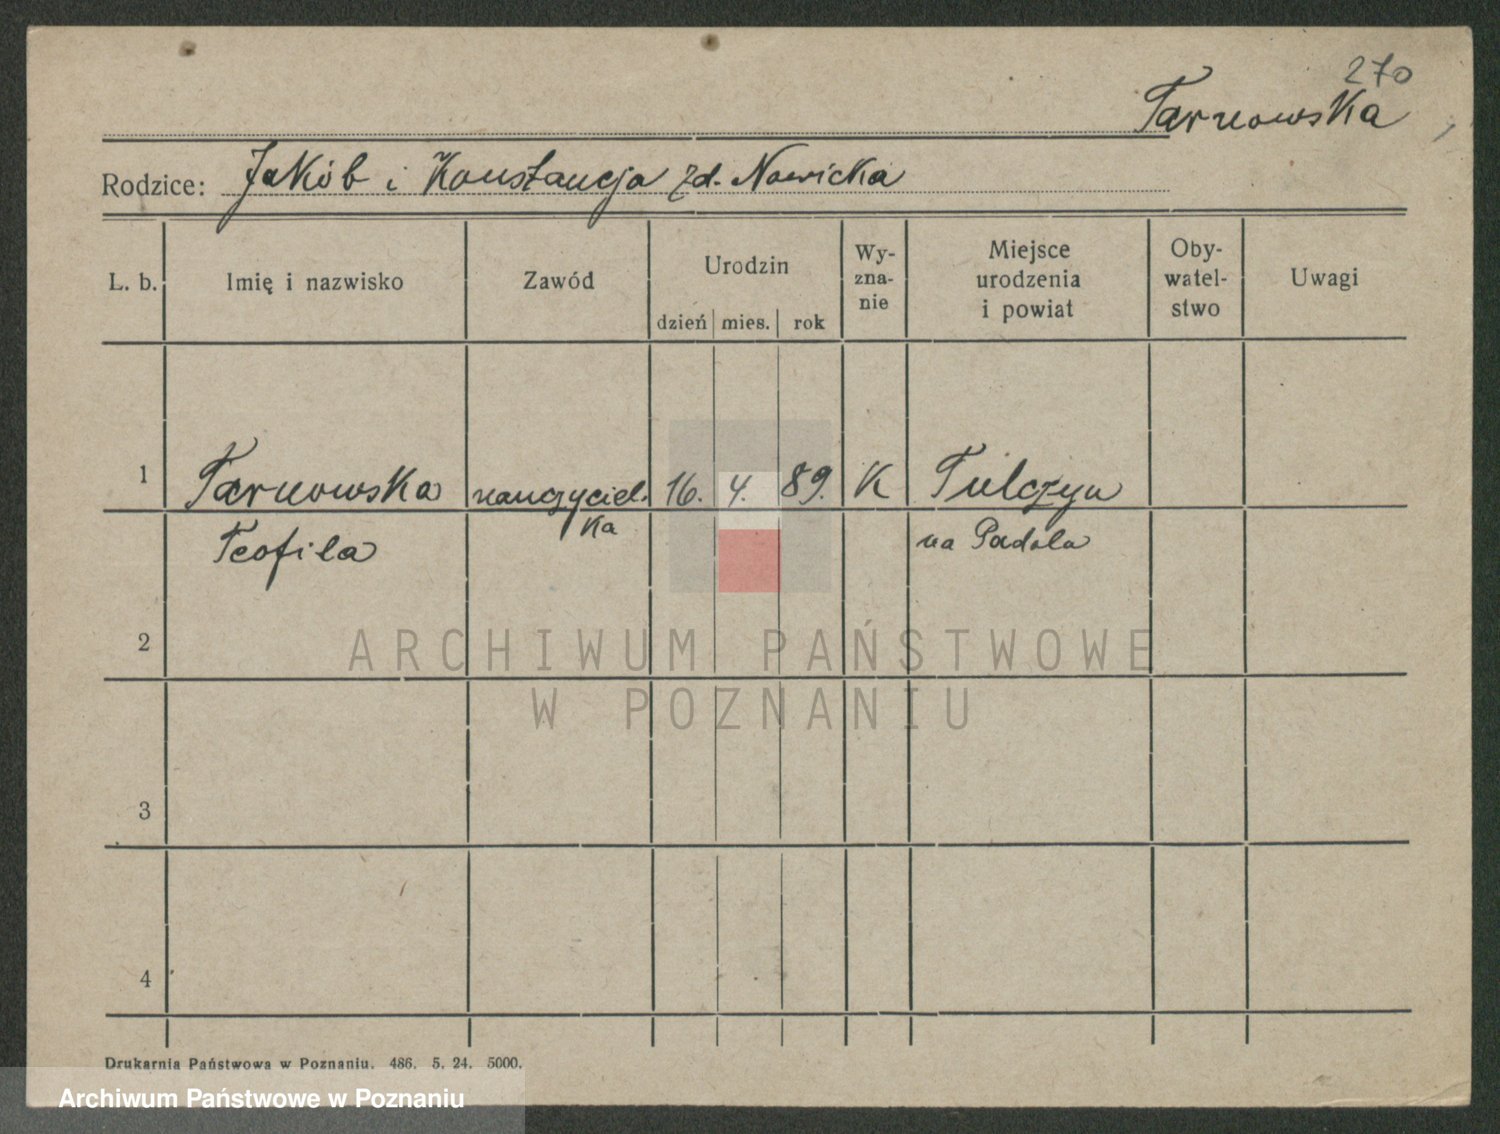 270
Tarnowska
Rodzice: Jakób i Konstancja zd. Nowicka
L. b. Imię i nazwisko Zawód Urodzin dzień mies. rok Wy-zna-nie Miejsce urodzenia i powiat Oby-watel-stwo Uwagi
1 Tarnowska nauczyciel. 16. 4. 89. K Tulczyn
Teofila ka na Padola
2
ARCHIWUM PAŃSTWOWE
W POZNANIU
3
4
Drukarnia Państwowa w Poznaniu. 486. 5. 24. 5000.
Archiwum Państwowe w Poznaniu